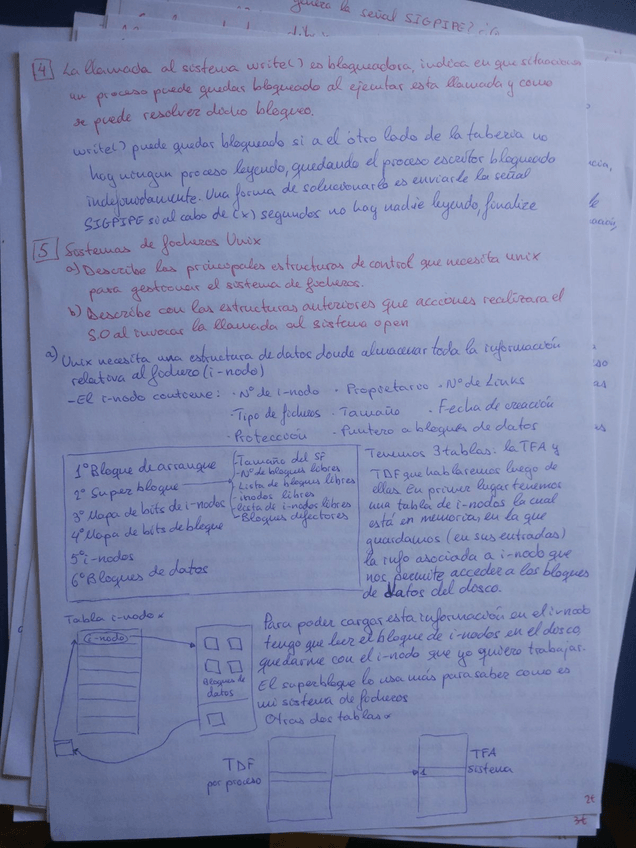 genera la señal SIGPIPE?
4 La llamada al sistema write() es bloqueadora, indica en que situaciones
un proceso puede quedar bloqueado al ejecutar esta llamada y como
se puede resolver dicho bloqueo.
write() puede quedar bloqueado si a el otro lado de la tuberia no
hay ningun proceso leyendo, quedando el proceso escritor bloqueado
indefinidamente. Una forma de solucionarlo es enviarle la señal
SIGPIPE si al cabo de (x) segundos no hay nadie leyendo, finalize
5 Sistemas de ficheros Unix
a) Describe las principales estructuras de control que necesita unix
para gestionar el sistema de ficheros.
b) Describe con las estructuras anteriores que acciones realizara el
S.O al invocar la llamada al sistema open
a) Unix necesita una estructura de datos donde almacenar toda la información
relativa al fichero (i-nodo)
- El i-nodo contiene: · Nº de i-nodo · Propietario · Nº de Links
· Tipo de ficheros · Tamaño · Fecha de creación
· Protección · Puntero a bloques de datos
1º Bloque de arranque
2º Super bloque
3º Mapa de bits de i-nodos
4º Mapa de bits de bloque
5º i-nodos
6º Bloques de datos
- Tamaño del SF
- Nº de bloques libres
- Lista de bloques libres
- inodos libres
- lista de i-nodos libres
- Bloques defectores
Tenemos 3 tablas: la TFA y
TDF que hablaremos luego de
ellas. En primer lugar tenemos
una tabla de i-nodos la cual
está en memoria, en la que
guardamos (en sus entradas)
la info asociada a i-nodo que
nos permite acceder a los bloques
de datos del disco.
Tabla i-nodo
(i-nodo)
Bloques de
datos
Para poder cargar esta información en el i-nodo
tengo que leer el bloque de i-nodos en el disco,
quedarme con el i-nodo que yo quiero trabajar.
El superbloque lo usa más para saber como es
mi sistema de ficheros
Otras dos tablas
TDF
por proceso
1
TFA
sistema